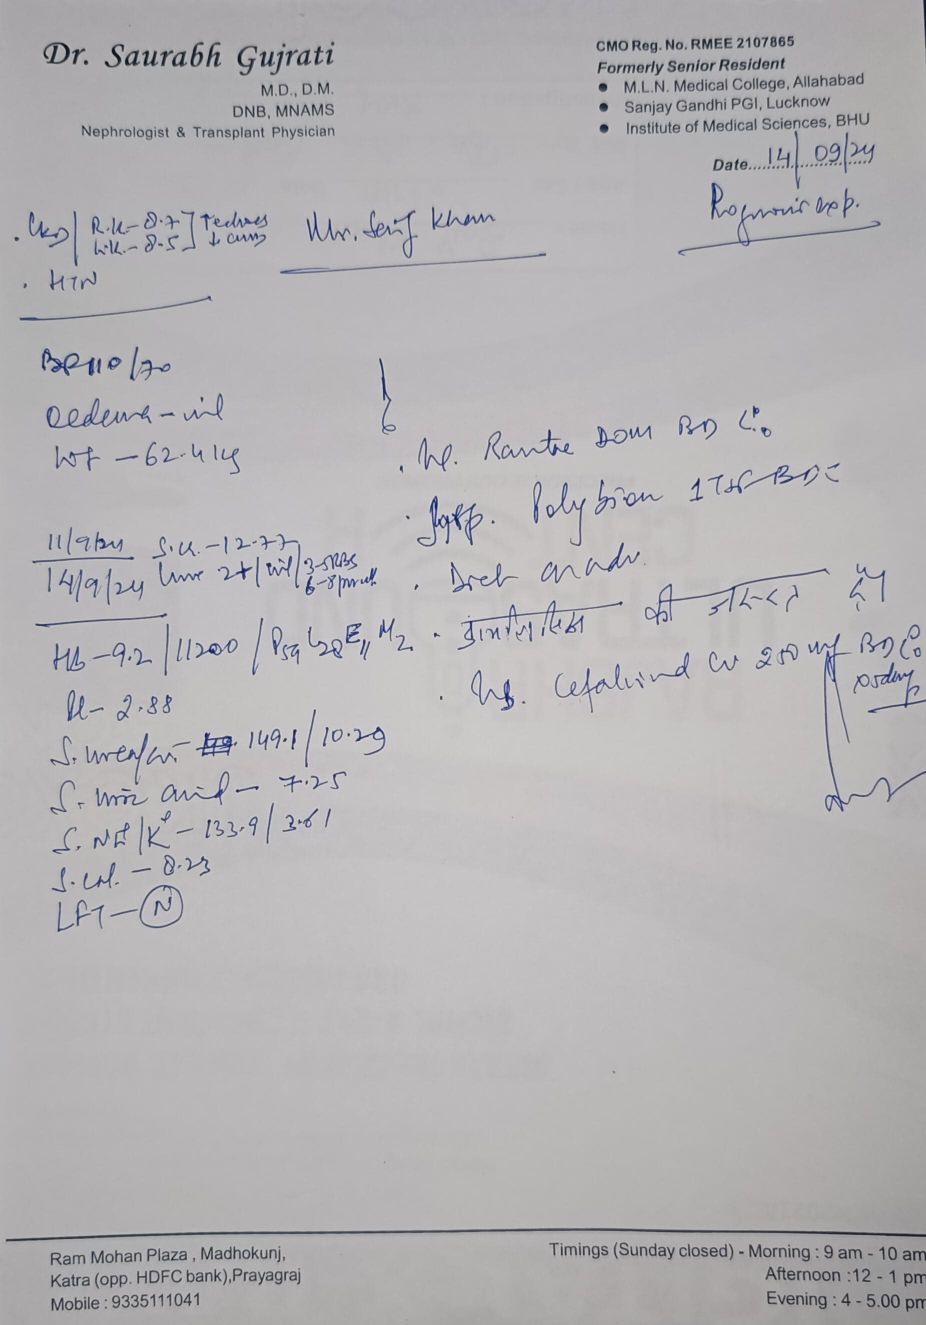 Dr. Saurabh Gujrati
M.D., D.M.
DNB, MNAMS
Nephrologist & Transplant Physician
CMO Reg. No. RMEE 2107865
Formerly Senior Resident
• M.L.N. Medical College, Allahabad
• Sanjay Gandhi PGI, Lucknow
• Institute of Medical Sciences, BHU
Date.....14/09/24
Prognosis exp.
. CKD / R.K - 8.7
L.K. - 8.5
. HTN
Mr. Khan
BP 110/70
Oedema - nil
Wt - 62.4 kg
11/9/24 S.Cr. - 12.77
14/9/24 Urine 2+/nil/3-5 RBS
Hb - 9.2 / 11200 / P59 L28 E11 M2
Pl - 2.88
S. urea/cr - 149.1 / 10.29
S. uric acid - 7.25
S. Na+/K+ - 133.9 / 3.61
S. cal. - 8.23
LFT - N
. DOM BD
. Syp. Polybion 1 TSF BD
. Diet as adv.
. डायलिसिस की
. Cefakind CV 250 mg BD
x 5 day
Ram Mohan Plaza , Madhokunj,
Katra (opp. HDFC bank),Prayagraj
Mobile : 9335111041
Timings (Sunday closed) - Morning : 9 am - 10 am
Afternoon :12 - 1 pm
Evening : 4 - 5.00 pm